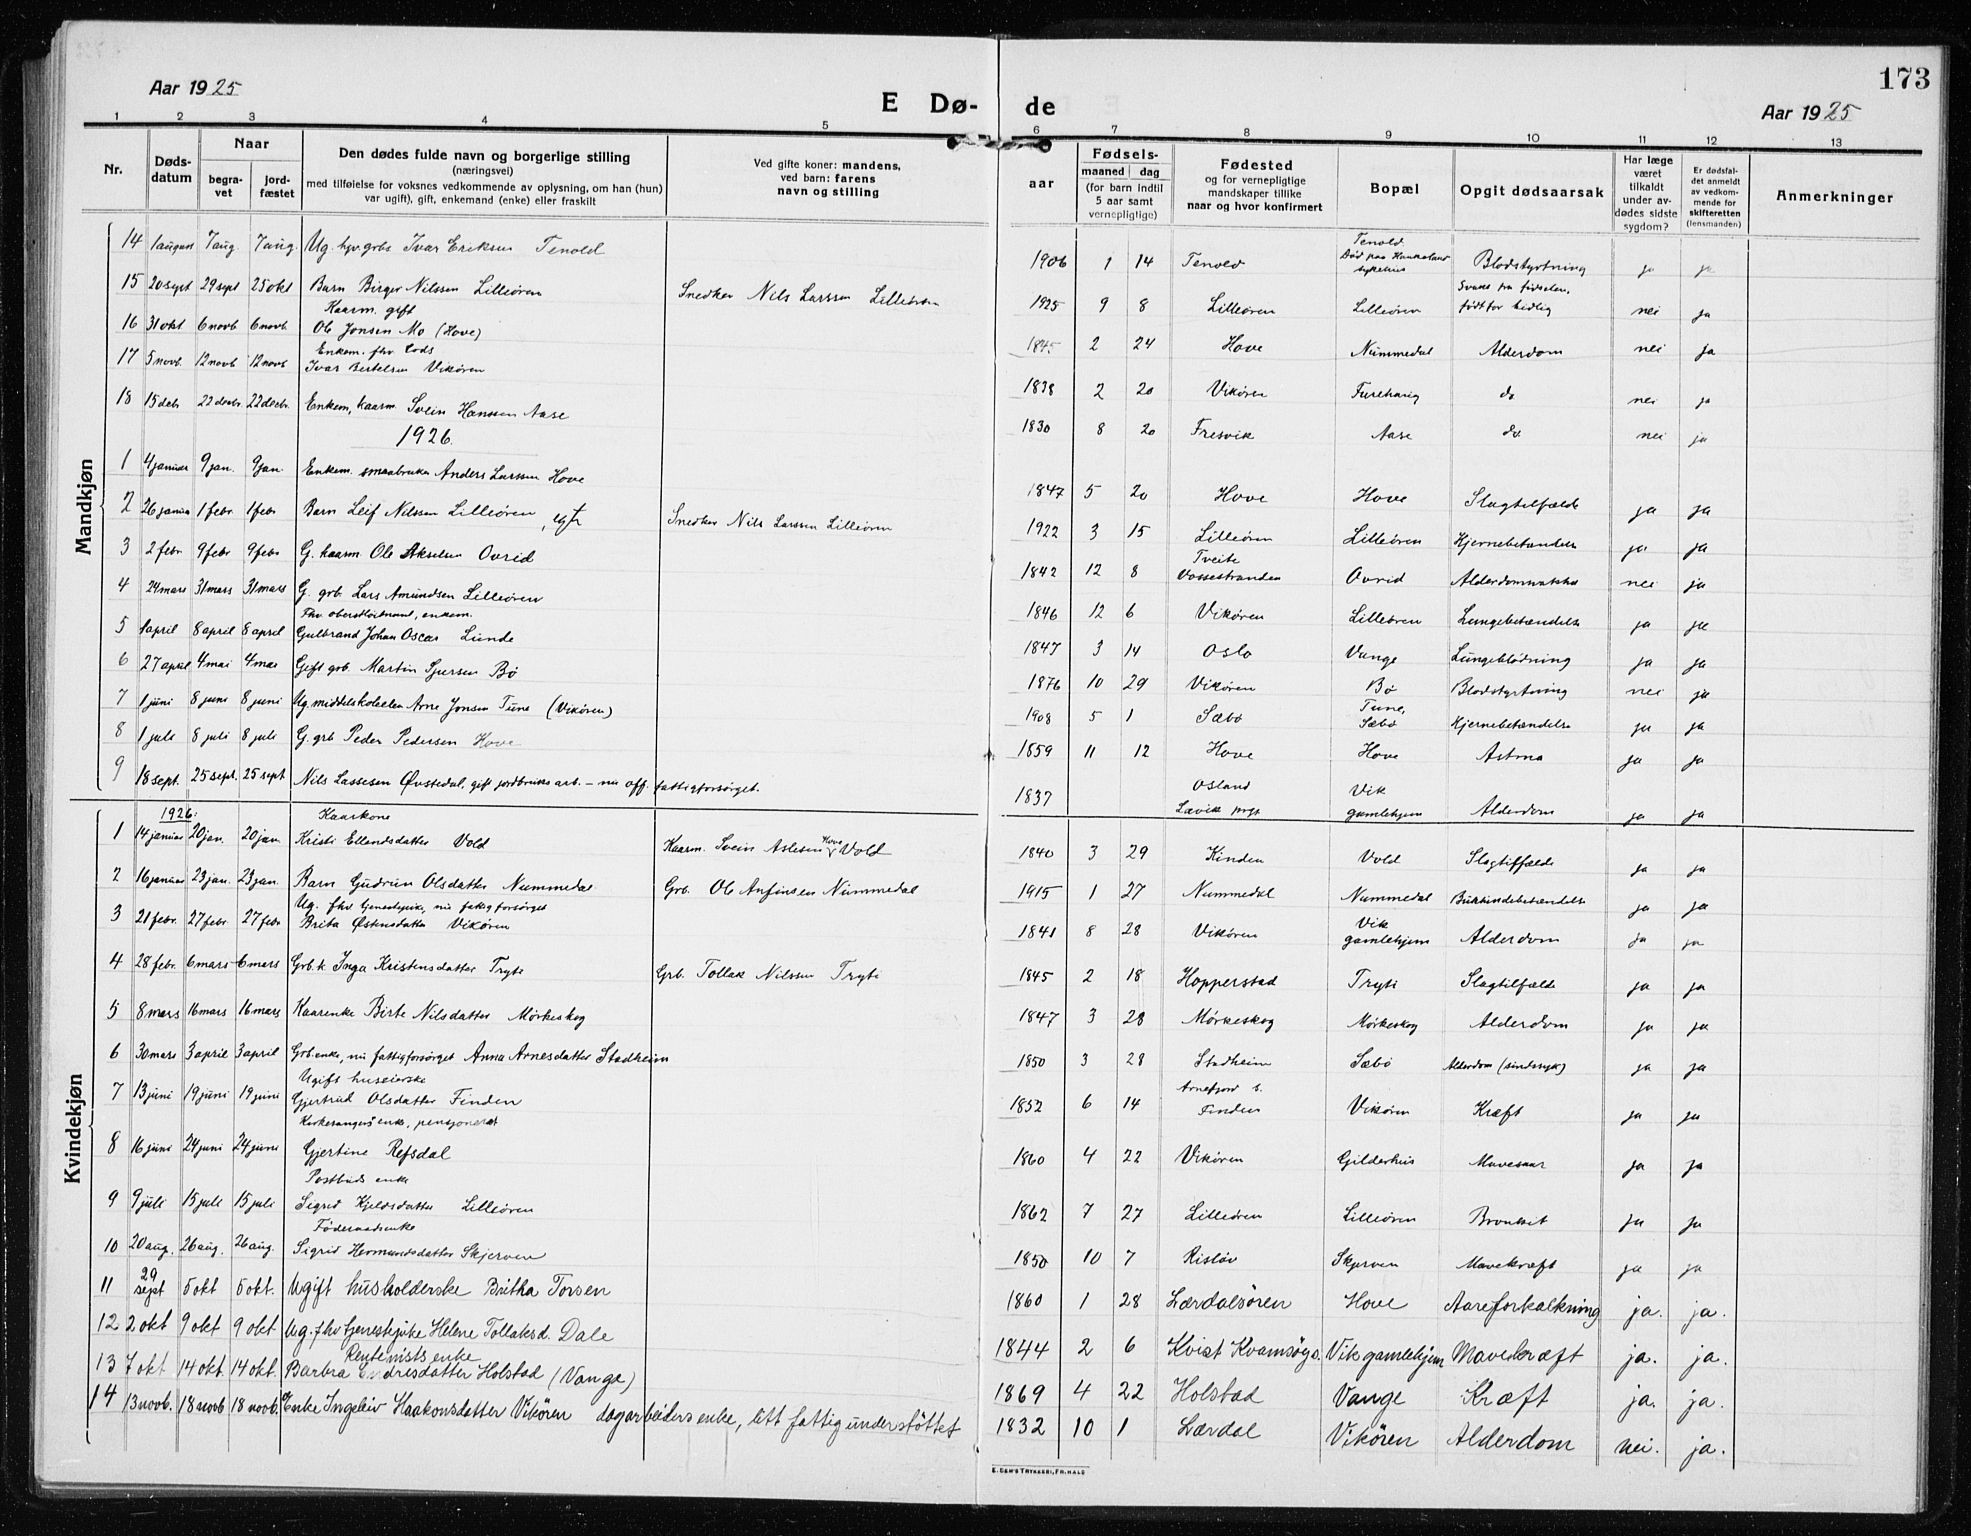 173
Aar 1925
E Dø- de
Aar 1925
1 2 3 4 5 6 7 8 9 10 11 12 13
Nr.
Døds-datum
Naar
begra-vet
jord-fæstet
Den dødes fulde navn og borgerlige stilling
(næringsvei)
med tilføielse for voksnes vedkommende av oplysning, om han (hun)
var ugift), gift, enkemand (enke) eller fraskilt
Ved gifte koner: mandens,
ved barn: farens
navn og stilling
Fødsels-
aar
maaned dag
(for barn indtil
5 aar samt
vernepligtige)
Fødested
og for vernepligtige
mandskaper tillike
naar og hvor konfirmert
Bopæl
Opgit dødsaarsak
Har læge
været
tilkaldt
under av-
dødes sidste
sygdom?
Er dødsfal-
det anmeldt
av vedkom-
mende for
skifteretten
(lensmanden)
Anmerkninger
Mandkjøn
14 1 august 7 aug. 7 aug. Ug. hjv. grbs Ivar Eriksen Tenold 1906 1 14 Tenold Tenold Død paa Haukeland sykehus Blodstyrtning ja ja
15 20 sept 29 sept 25 okt Barn Birger Nilssen Lilleøren Snedker Nils Larssen Lilleøren 1925 9 8 Lilleøren Lilleøren Svak fra fødselen, født for tidlig nei ja
16 31 okt 6 novb 6 novb. Kaarm. gift Ole Jonsen Mo (Hove) 1845 2 24 Hove Nummedal Alderdom nei ja
17 5 novb. 12 novb 12 novb Enkem. fhv. Ivar Bertelsen Vikøren 1838 2 20 Vikøren Furehaug do nei ja
18 15 debr 22 decbr. 22 decbr. Enkem, kaarm. Svein Hanssen Aase 1830 8 20 Fresvik Aase do. nei ja
1926.
1 4 januar 9 jan. 9 jan. Enkem. smaabruker Anders Larssen Hove 1847 5 20 Hove Hove Slagtilfælde ja ja
2 26 januar 1 febr. 1 febr Barn Leif Nilssen Lilleøren, egt. Snedker Nils Larssen Lilleøren 1922 3 15 Lilleøren Lilleøren Hjernebetændelse ja ja
3 2 febr. 9 febr 9 febr G. kaarm. Ole Akselsen Ovrid 1842 12 8 Tveite Vossestranden Ovrid Alderdomsvakhet nei ja
4 24 mars 31 mars 31 mars G. grb. Lars Amundsen Lilleøren 1846 12 6 Vikøren Lilleøren Lungebetændelse ja ja
5 1 april 8 april 8 april Fhv. oberstløitnant, enkem. Gulbrand Johan Oscar Lunde 1847 3 14 Oslo Vange Lungeblødning ja ja
6 27 april 4 mai 4 mai Gift grb. Martin Sjursen Bø 1876 10 29 Vikøren Bø Blodstyrtning nei ja
7 1 juni 8 juni 8 juni Ug. middelskoleelev Arne Jonsen Tune (Vikøren) 1908 5 1 Sæbø Tune, Sæbø Hjernebetændelse ja ja
8 1 juli 8 juli 8 juli G. grb Peder Pedersen Hove 1859 11 12 Hove Hove Astma ja ja
9 18 sept. 25 sept. 25 sept Nils Lassesen Øvstedal, gift jordbruks arb. – nu off. fattigforsørget. 1837 Osland Lavik prgj Vik gamlehjem Alderdom ja ja
Kvindekjøn
1926:
1 14 januar 20 jan. 20 jan. Kaarkone Kristi Ellendsdatter Vold Kaarm. Svein Aslesen Hove Vold 1840 3 29 Kinden Vold Slagtilfælde ja ja
2 16 januar 23 jan. 23 jan. Barn Gudrun Olsdatter Nummedal Grb. Ole Anfinsen Nummedal 1915 1 27 Nummedal Nummedal Bukhindebetændelse ja ja
3 21 febr. 27 febr. 27 febr Ug. fhv tjenestepike, nu fattigforsørget Brita Østensdatter Vikøren 1841 8 28 Vikøren Vik gamlehjem Alderdom ja ja
4 28 febr. 6 mars 6 mars Grb. k. Inga Kristensdatter Tryti Grb. Tollak Nilssen Tryti 1845 2 18 Hopperstad Tryti Slagtilfælde ja ja
5 8 mars 16 mars 16 mars Kaarenke Birte Nilsdatter Mørkeskog 1847 3 28 Mørkeskog Mørkeskog Alderdom ja ja
6 30 mars 3 april 3 april Grb. enke, nu fattigforsørget Anna Arnesdatter Stadheim 1850 3 28 Stadheim Sæbø Alderdom (sindssyk) ja ja
7 13 juni 19 juni 19 juni Ugift huseierske Gjertrud Olsdatter Finden 1852 6 14 Arnefjord s. Finden Vikøren Kræft ja ja
8 16 juni 24 juni 24 juni Kirkesangers enke, pensjonert Gjertine Refsdal 1860 4 22 Vikøren Gilderhus Mavesaar ja ja
9 9 juli 15 juli 15 juli Postbuds enke Sigrid Kjeldsdatter Lilleøren 1862 7 27 Lilleøren Lilleøren Bronkit ja ja
10 20 aug. 26 aug. 26 aug. Føderaadsenke Sigrid Hermundsdatter Skjerven 1850 10 7 Risløv Skjerven Mavekræft ja ja
11 29 sept 5 okt 5 okt. Ugift husholderske Britha Torsen 1860 1 28 Lærdalsøren Hove Aareforkalkning ja. ja.
12 2 okt 9 okt 9 okt Ug. fhv tjenestepike Helene Tollaksd. Dale 1844 2 6 Kvist Kvamsøy s. Vik gamlehjem Mavekræft ja. ja.
13 7 okt 14 okt. 14 okt. Rentenists enke Barbra Endresdatter Holstad (Vange) 1869 4 22 Holstad Vange Kræft ja. ja.
14 13 novb. 18 novb 18 novb. Enke Ingeleiv Haakonsdatter Vikøren dagarbeiders enke, litt fattigunderstøttet 1832 10 1 Lærdal Vikøren Alderdom nei. ja.
E. SEM'S TRYKKERI, FR. HALD